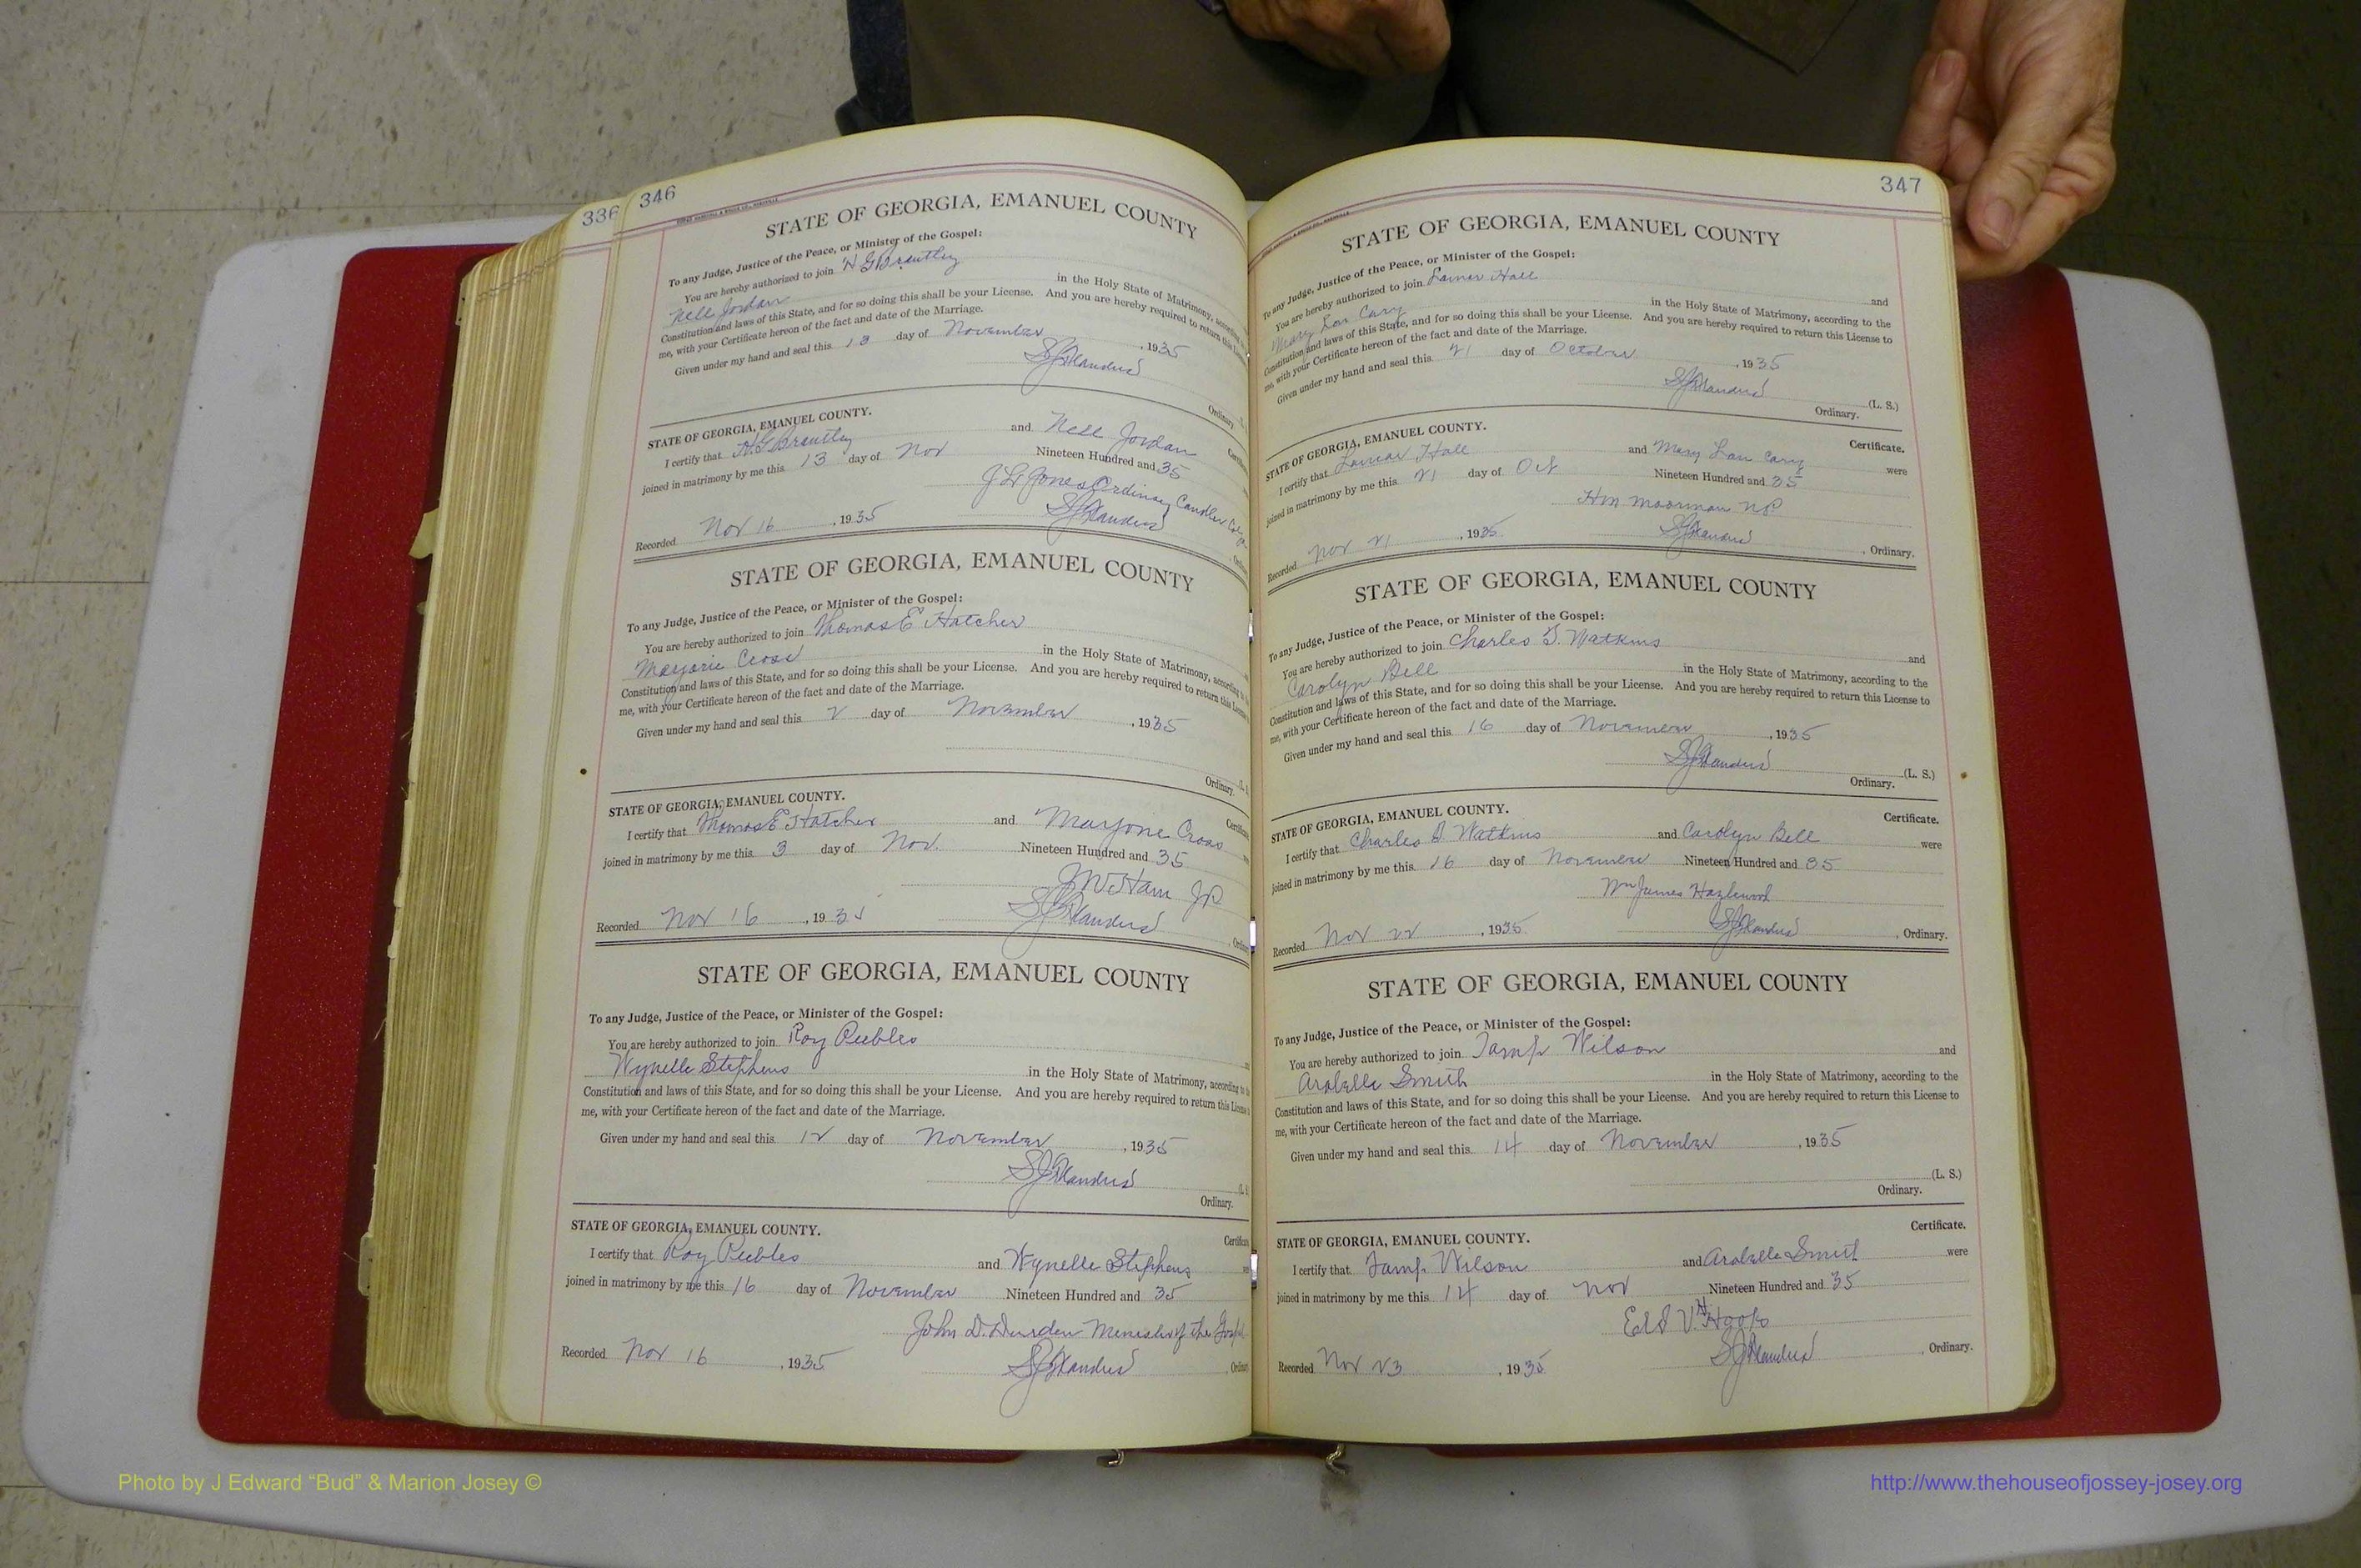 336
346
STATE OF GEORGIA, EMANUEL COUNTY
To any Judge, Justice of the Peace, or Minister of the Gospel:
You are hereby authorized to join H G Brantley
Nell Jordan in the Holy State of Matrimony, according
Constitution and laws of this State, and for so doing this shall be your License. And you are hereby required to return this
me, with your Certificate hereon of the fact and date of the Marriage.
Given under my hand and seal this 13 day of November, 1935
Ordinary.
STATE OF GEORGIA, EMANUEL COUNTY.
I certify that H. G Brantley and Nell Jordan
joined in matrimony by me this 13 day of Nov Nineteen Hundred and 35
Jones Ordinary Candler
Recorded Nov 16, 1935
STATE OF GEORGIA, EMANUEL COUNTY
To any Judge, Justice of the Peace, or Minister of the Gospel:
You are hereby authorized to join Thomas E Hatcher
Marjorie Cross in the Holy State of Matrimony, according
Constitution and laws of this State, and for so doing this shall be your License. And you are hereby required to return this License
me, with your Certificate hereon of the fact and date of the Marriage.
Given under my hand and seal this 2 day of November, 1935
Ordinary.
STATE OF GEORGIA, EMANUEL COUNTY.
I certify that Thomas E Hatcher and Marjorie Cross
joined in matrimony by me this 3 day of Nov. Nineteen Hundred and 35
Recorded Nov 16, 1935
STATE OF GEORGIA, EMANUEL COUNTY
To any Judge, Justice of the Peace, or Minister of the Gospel:
You are hereby authorized to join Roy Peebles
Wynelle Stephens in the Holy State of Matrimony, according to
Constitution and laws of this State, and for so doing this shall be your License. And you are hereby required to return this License
me, with your Certificate hereon of the fact and date of the Marriage.
Given under my hand and seal this 12 day of November, 1935
S J Flanders
Ordinary.
STATE OF GEORGIA, EMANUEL COUNTY.
I certify that Roy Peebles and Wynelle Stephens
joined in matrimony by me this 16 day of November Nineteen Hundred and 35
John D. Durden Minister of the Gospel
Recorded Nov 16, 1935 S J Flanders
347
STATE OF GEORGIA, EMANUEL COUNTY
To any Judge, Justice of the Peace, or Minister of the Gospel:
You are hereby authorized to join Lamar Hall and
Mary Lou Cary in the Holy State of Matrimony, according to the
Constitution and laws of this State, and for so doing this shall be your License. And you are hereby required to return this License to
me, with your Certificate hereon of the fact and date of the Marriage.
Given under my hand and seal this 21 day of October, 1935
S J Flanders (L. S.)
Ordinary.
STATE OF GEORGIA, EMANUEL COUNTY. Certificate.
I certify that Lamar Hall and Mary Lou Cary were
joined in matrimony by me this 21 day of Oct Nineteen Hundred and 35
H M Moorman NP
Recorded Nov 21, 1935 S J Flanders, Ordinary.
STATE OF GEORGIA, EMANUEL COUNTY
To any Judge, Justice of the Peace, or Minister of the Gospel:
You are hereby authorized to join Charles Watkins and
Carolyn Bell in the Holy State of Matrimony, according to the
Constitution and laws of this State, and for so doing this shall be your License. And you are hereby required to return this License to
me, with your Certificate hereon of the fact and date of the Marriage.
Given under my hand and seal this 16 day of November, 1935
S J Flanders (L. S.)
Ordinary.
STATE OF GEORGIA, EMANUEL COUNTY. Certificate.
I certify that Charles Watkins and Carolyn Bell were
joined in matrimony by me this 16 day of November Nineteen Hundred and 35
Wm James Hazlewood
Recorded Nov 22, 1935 S J Flanders, Ordinary.
STATE OF GEORGIA, EMANUEL COUNTY
To any Judge, Justice of the Peace, or Minister of the Gospel:
You are hereby authorized to join Wilson and
Arabelle Smith in the Holy State of Matrimony, according to the
Constitution and laws of this State, and for so doing this shall be your License. And you are hereby required to return this License to
me, with your Certificate hereon of the fact and date of the Marriage.
Given under my hand and seal this 14 day of November, 1935
(L. S.)
Ordinary.
STATE OF GEORGIA, EMANUEL COUNTY. Certificate.
I certify that Wilson and Arabelle Smith were
joined in matrimony by me this 14 day of Nov Nineteen Hundred and 35
Recorded Nov 23, 1935 S J Flanders, Ordinary.
Photo by J Edward “Bud” & Marion Josey ©
http://www.thehouseofjossey-josey.org